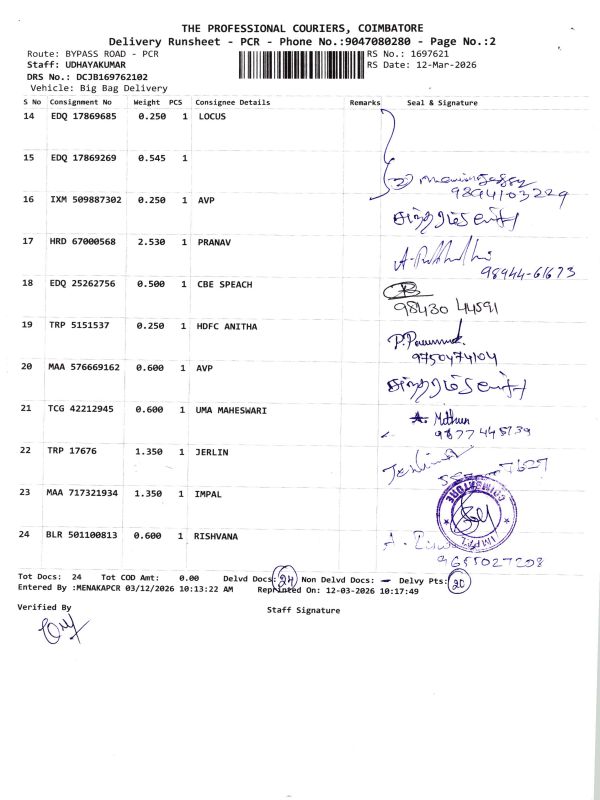 THE PROFESSIONAL COURIERS, COIMBATORE
Delivery Runsheet - PCR - Phone No.:9047080280 - Page No.:2
Route: BYPASS ROAD - PCR RS No.: 1697621
Staff: UDHAYAKUMAR RS Date: 12-Mar-2026
DRS No.: DCJB169762102
Vehicle: Big Bag Delivery
S No Consignment No Weight PCS Consignee Details Remarks Seal & Signature
14 EDQ 17869685 0.250 1 LOCUS
15 EDQ 17869269 0.545 1
9894103229
16 IXM 509887302 0.250 1 AVP
17 HRD 67000568 2.530 1 PRANAV
98944-61673
18 EDQ 25262756 0.500 1 CBE SPEACH
98430 44591
19 TRP 5151537 0.250 1 HDFC ANITHA
9750474104
20 MAA 576669162 0.600 1 AVP
21 TCG 42212945 0.600 1 UMA MAHESWARI
22 TRP 17676 1.350 1 JERLIN
23 MAA 717321934 1.350 1 IMPAL
COIMBATORE
24 BLR 501100813 0.600 1 RISHVANA
9655027208
Tot Docs: 24 Tot COD Amt: 0.00 Delvd Docs: 24 Non Delvd Docs: - Delvy Pts: 20
Entered By :MENAKAPCR 03/12/2026 10:13:22 AM Reprinted On: 12-03-2026 10:17:49
Verified By Staff Signature